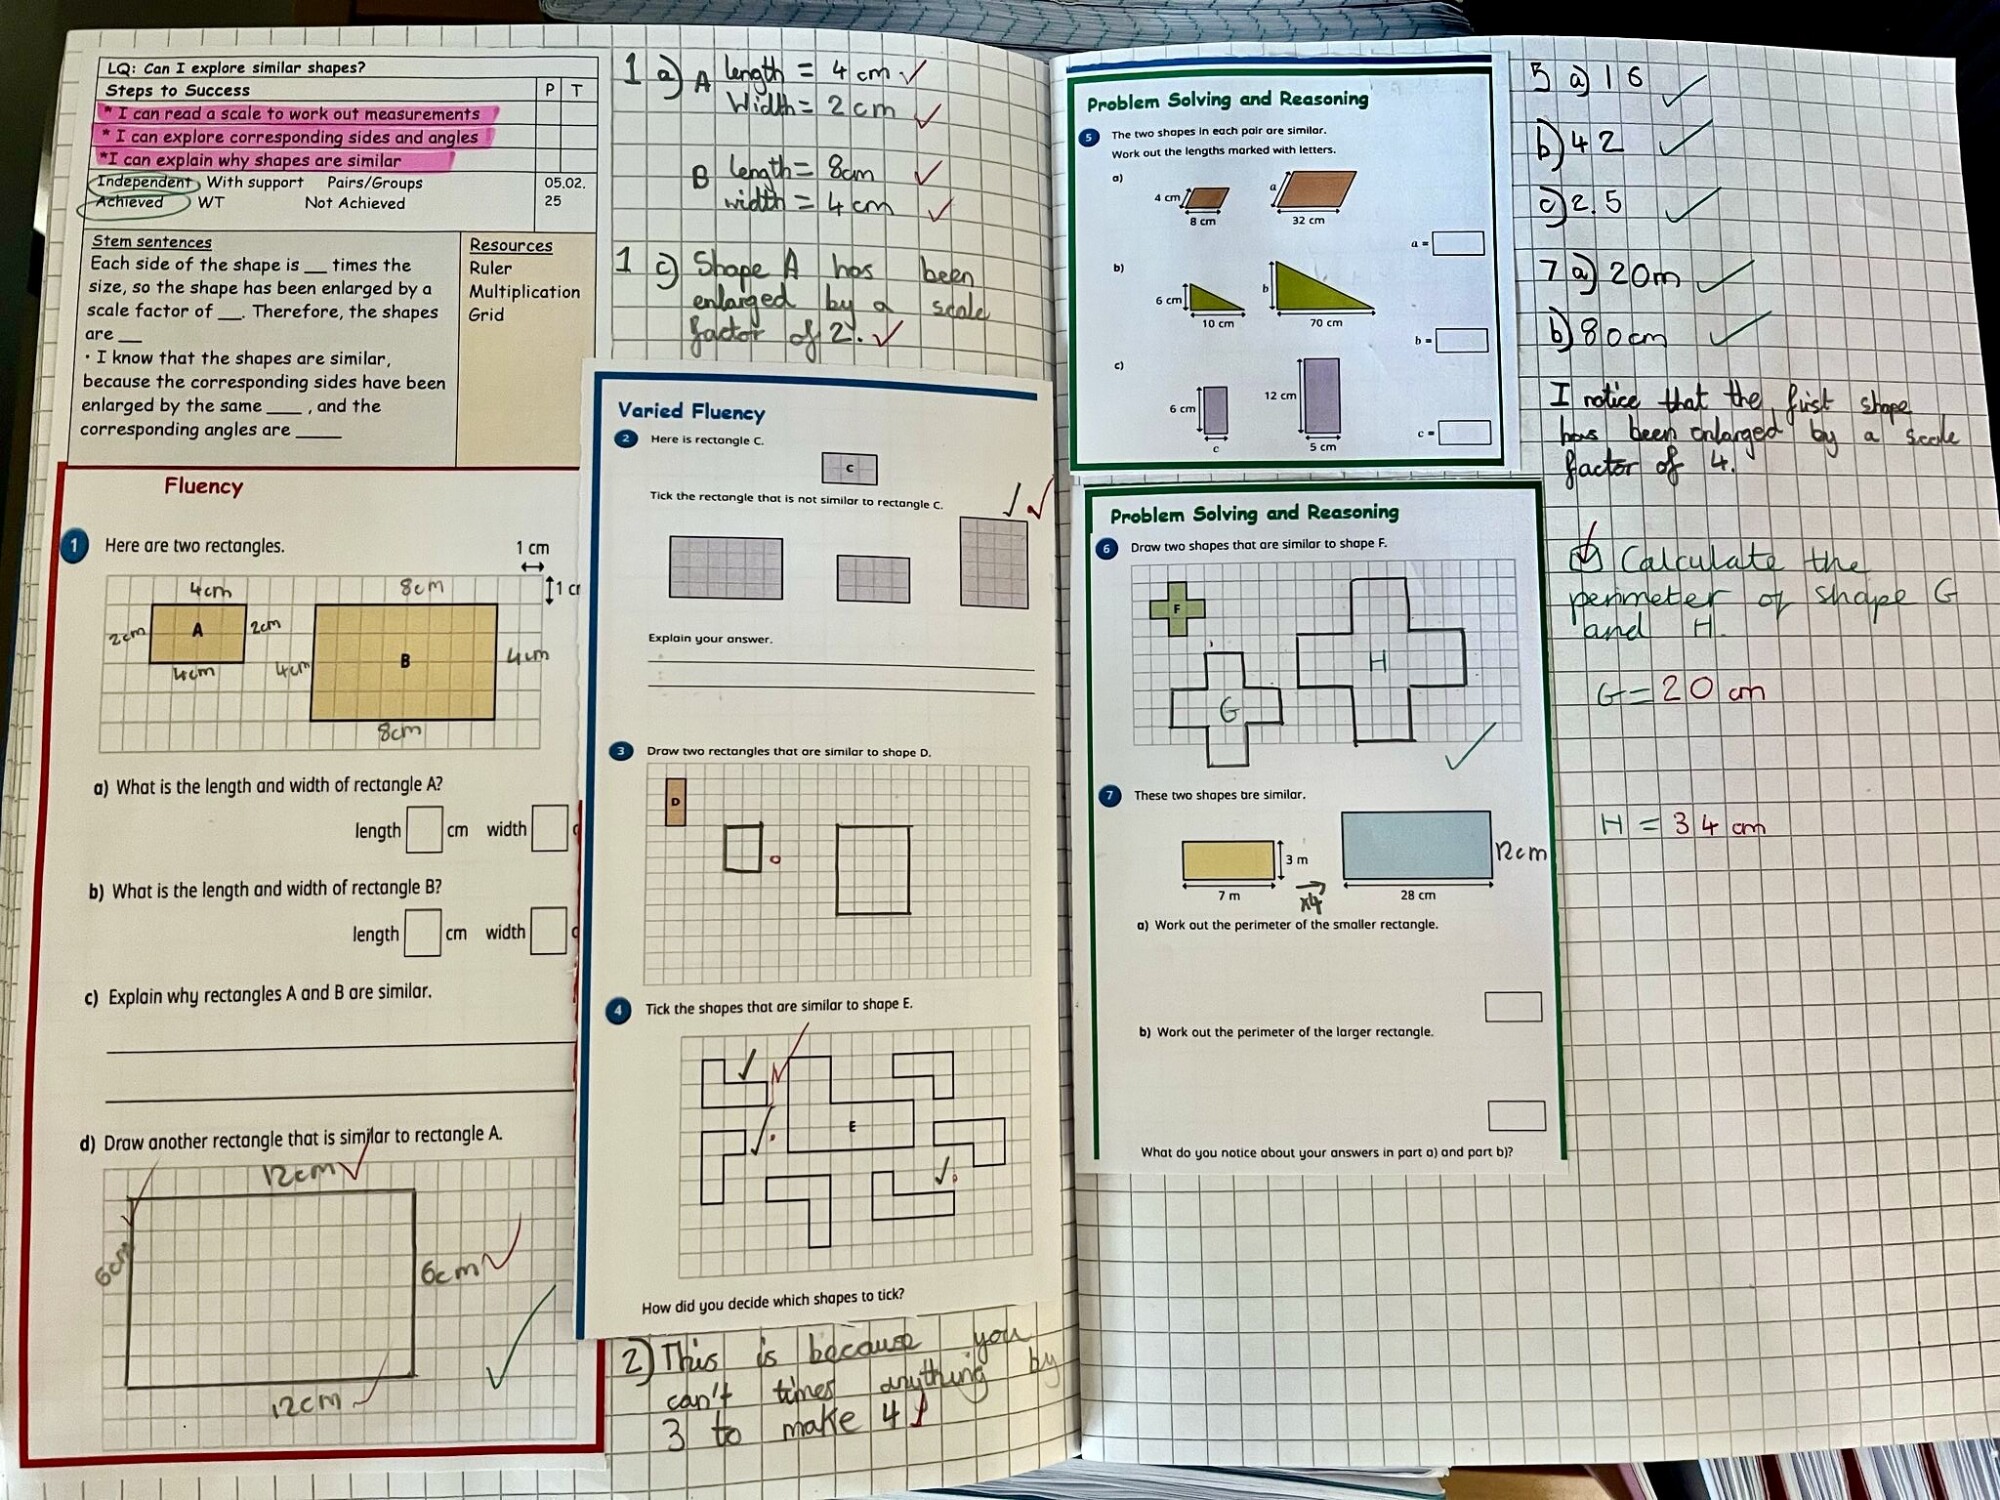 LQ: Can I explore similar shapes?
Steps to Success
P T
* I can read a scale to work out measurements
* I can explore corresponding sides and angles
*I can explain why shapes are similar
Independent With support Pairs/Groups
Achieved WT Not Achieved
05.02.
25
Stem sentences
Each side of the shape is __ times the
size, so the shape has been enlarged by a
scale factor of __. Therefore, the shapes
are __
· I know that the shapes are similar,
because the corresponding sides have been
enlarged by the same ____ , and the
corresponding angles are _____
Resources
Ruler
Multiplication
Grid
Fluency
1 Here are two rectangles.
1 cm
1 c
4cm
8cm
2cm
A
2cm
4cm
4cm
B
4cm
8cm
a) What is the length and width of rectangle A?
length cm width
b) What is the length and width of rectangle B?
length cm width
c) Explain why rectangles A and B are similar.
d) Draw another rectangle that is similar to rectangle A.
12cm
6cm
6cm
12cm
1 a) A length = 4 cm
Width = 2 cm
B length = 8cm
width = 4 cm
1 c) Shape A has been
enlarged by a scale
factor of 2.
Varied Fluency
2 Here is rectangle C.
C
Tick the rectangle that is not similar to rectangle C.
Explain your answer.
3 Draw two rectangles that are similar to shape D.
D
4 Tick the shapes that are similar to shape E.
E
How did you decide which shapes to tick?
2) This is because you
can't times anything by
3 to make 4
Problem Solving and Reasoning
5 The two shapes in each pair are similar.
Work out the lengths marked with letters.
a)
4 cm
8 cm
a
32 cm
a =
b)
6 cm
10 cm
b
70 cm
b =
c)
6 cm
c
12 cm
5 cm
c =
Problem Solving and Reasoning
6 Draw two shapes that are similar to shape F.
F
H
G
7 These two shapes are similar.
3 m
7 m
x4
12cm
28 cm
a) Work out the perimeter of the smaller rectangle.
b) Work out the perimeter of the larger rectangle.
What do you notice about your answers in part a) and part b)?
5 a) 16
b) 42
c) 2.5
7 a) 20m
b) 80cm
I notice that the first shape
has been enlarged by a scale
factor of 4.
Calculate the
perimeter of shape G
and H.
G = 20 cm
H = 34 cm